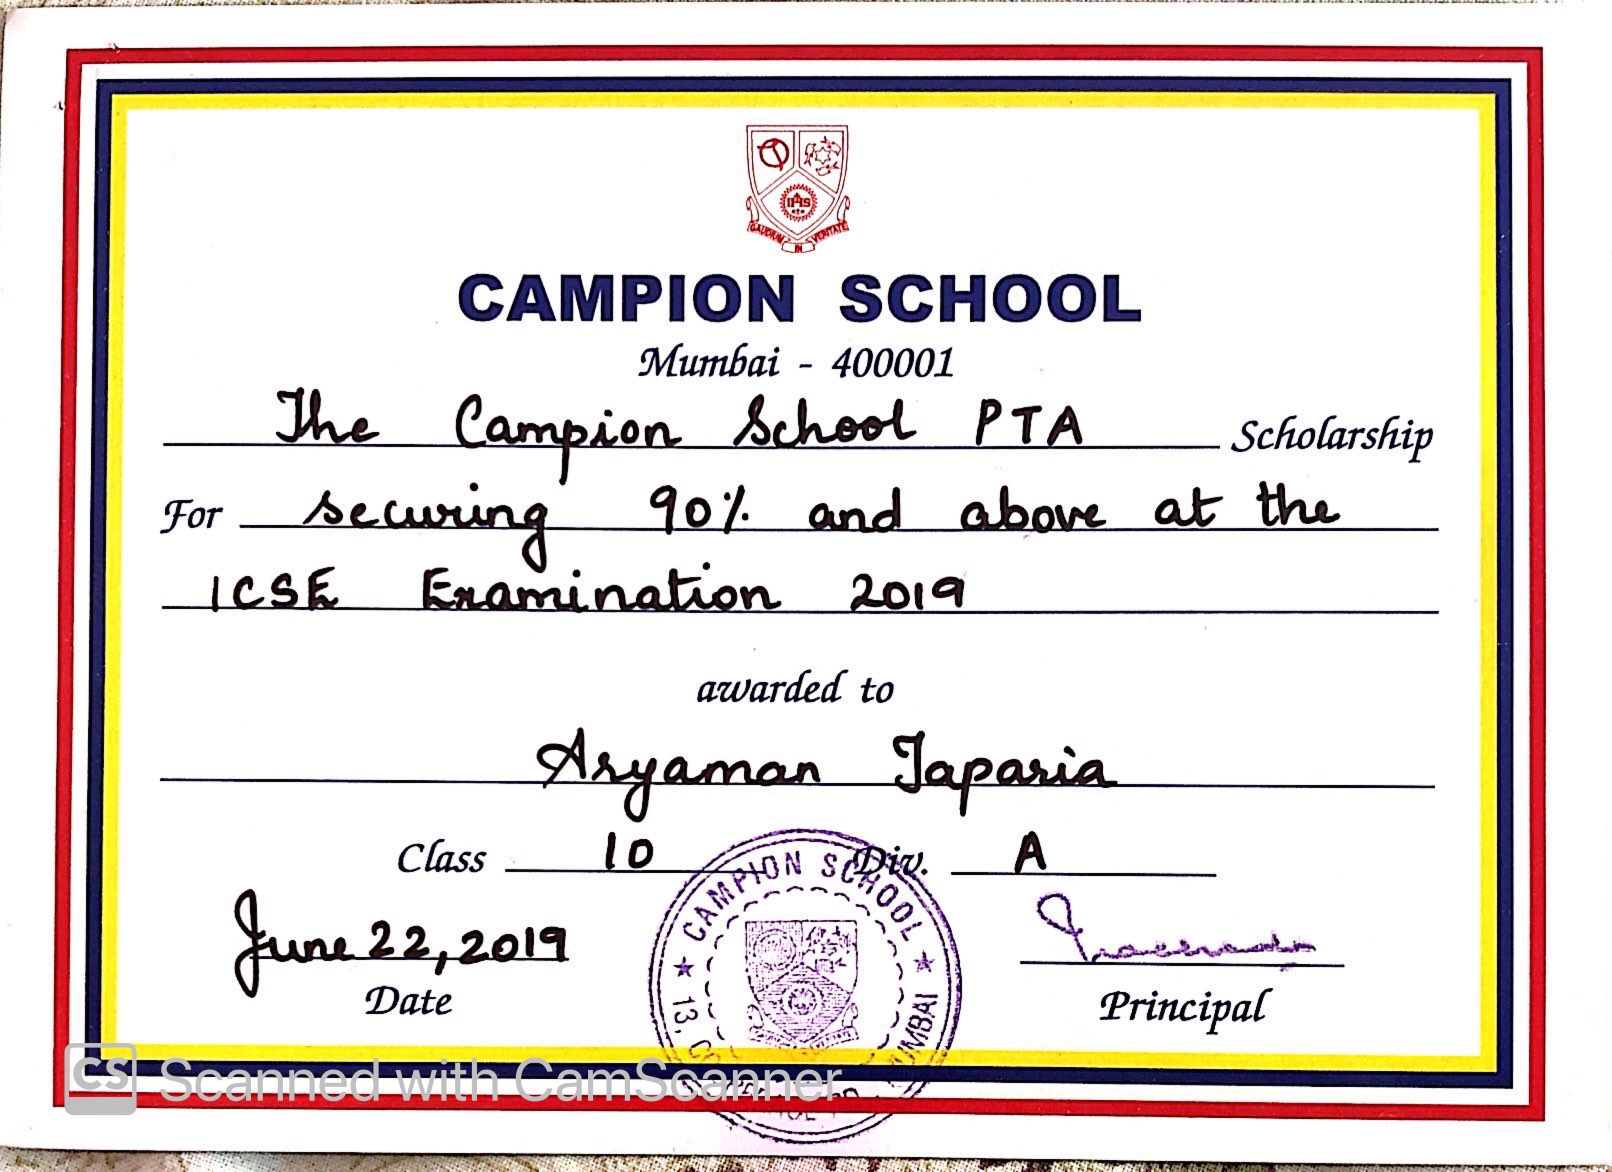 GAUDIUM IN VERITATE
CAMPION SCHOOL
Mumbai - 400001
The Campion School PTA Scholarship
For securing 90% and above at the
ICSE Examination 2019
awarded to
Aryaman Taparia
Class 10 Div. A
June 22, 2019
Date
Principal
CAMPION SCHOOL
13,
MUMBAI
CS Scanned with CamScanner